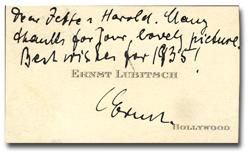 Dear Jette & Harold. Many
thanks for your lovely picture.
Best wishes for 1935!
ERNST LUBITSCH
Ernst.
HOLLYWOOD